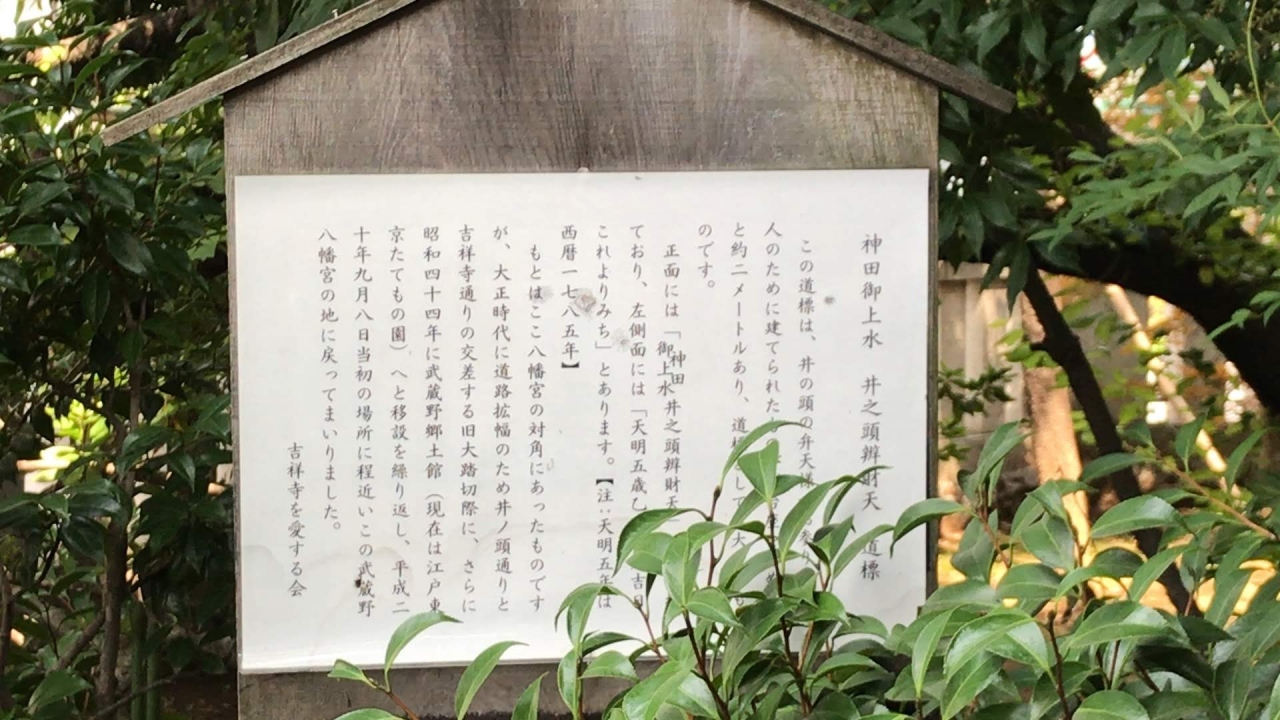 神田御上水 井之頭辨財天 道標
この道標は、井の頭の弁天様
人のために建てられた
と約二メートルあり、道標として大
のです。
正面には「神田御上水井之頭辨財天
ており、左側面には「天明五歳乙 吉月
これよりみち」とあります。【注:天明五年は
西暦一七八五年】
もとはここ八幡宮の対角にあったものです
が、大正時代に道路拡幅のため井ノ頭通りと
吉祥寺通りの交差する旧大踏切際に、さらに
昭和四十四年に武蔵野郷土館(現在は江戸東
京たてもの園)へと移設を繰り返し、平成二
十年九月八日当初の場所に程近いこの武蔵野
八幡宮の地に戻ってまいりました。
吉祥寺を愛する会